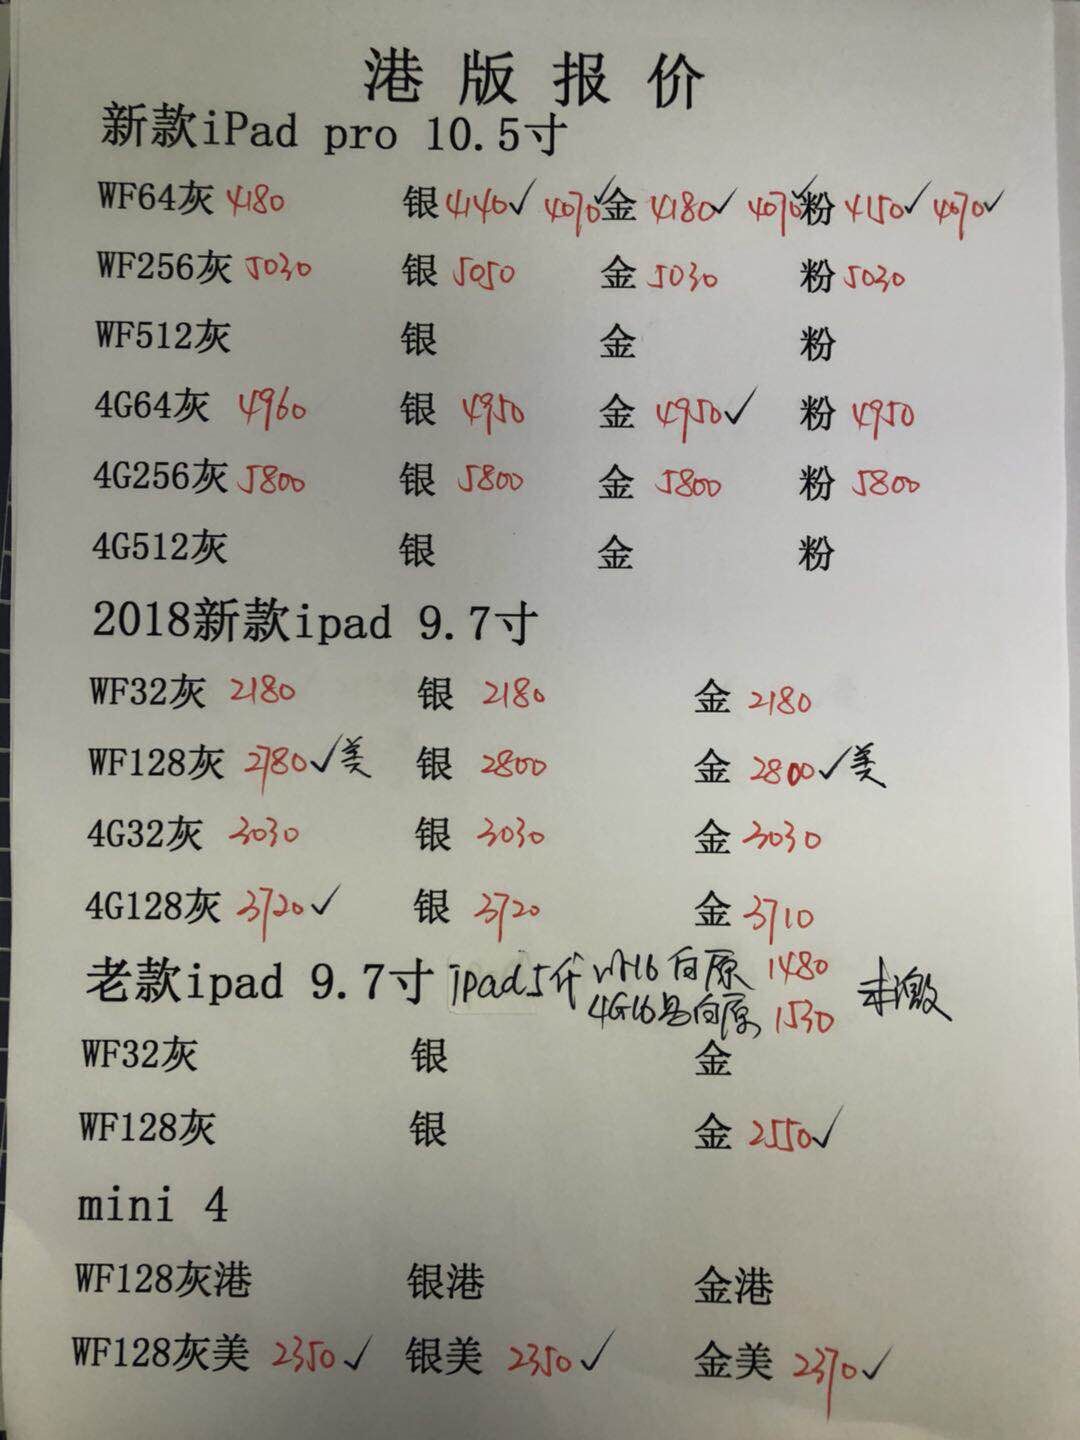 港版报价
新款iPad pro 10.5寸
WF64灰 4180 银 4140✓ 4070✓ 金 4180✓ 4070✓ 粉 4150✓ 4070✓
WF256灰 5030 银 5050 金 5030 粉 5030
WF512灰 银 金 粉
4G64灰 4960 银 4950 金 4950✓ 粉 4950
4G256灰 5800 银 5800 金 5800 粉 5800
4G512灰 银 金 粉
2018新款ipad 9.7寸
WF32灰 2180 银 2180 金 2180
WF128灰 2780✓美 银 2800 金 2800✓美
4G32灰 3030 银 3030 金 3030
4G128灰 3720✓ 银 3720 金 3710
老款ipad 9.7寸 ipad5代 16白原 1480 未激
4G16 白原 1530
WF32灰 银 金
WF128灰 银 金 2550✓
mini 4
WF128灰港 银港 金港
WF128灰美 2350✓ 银美 2350✓ 金美 2370✓